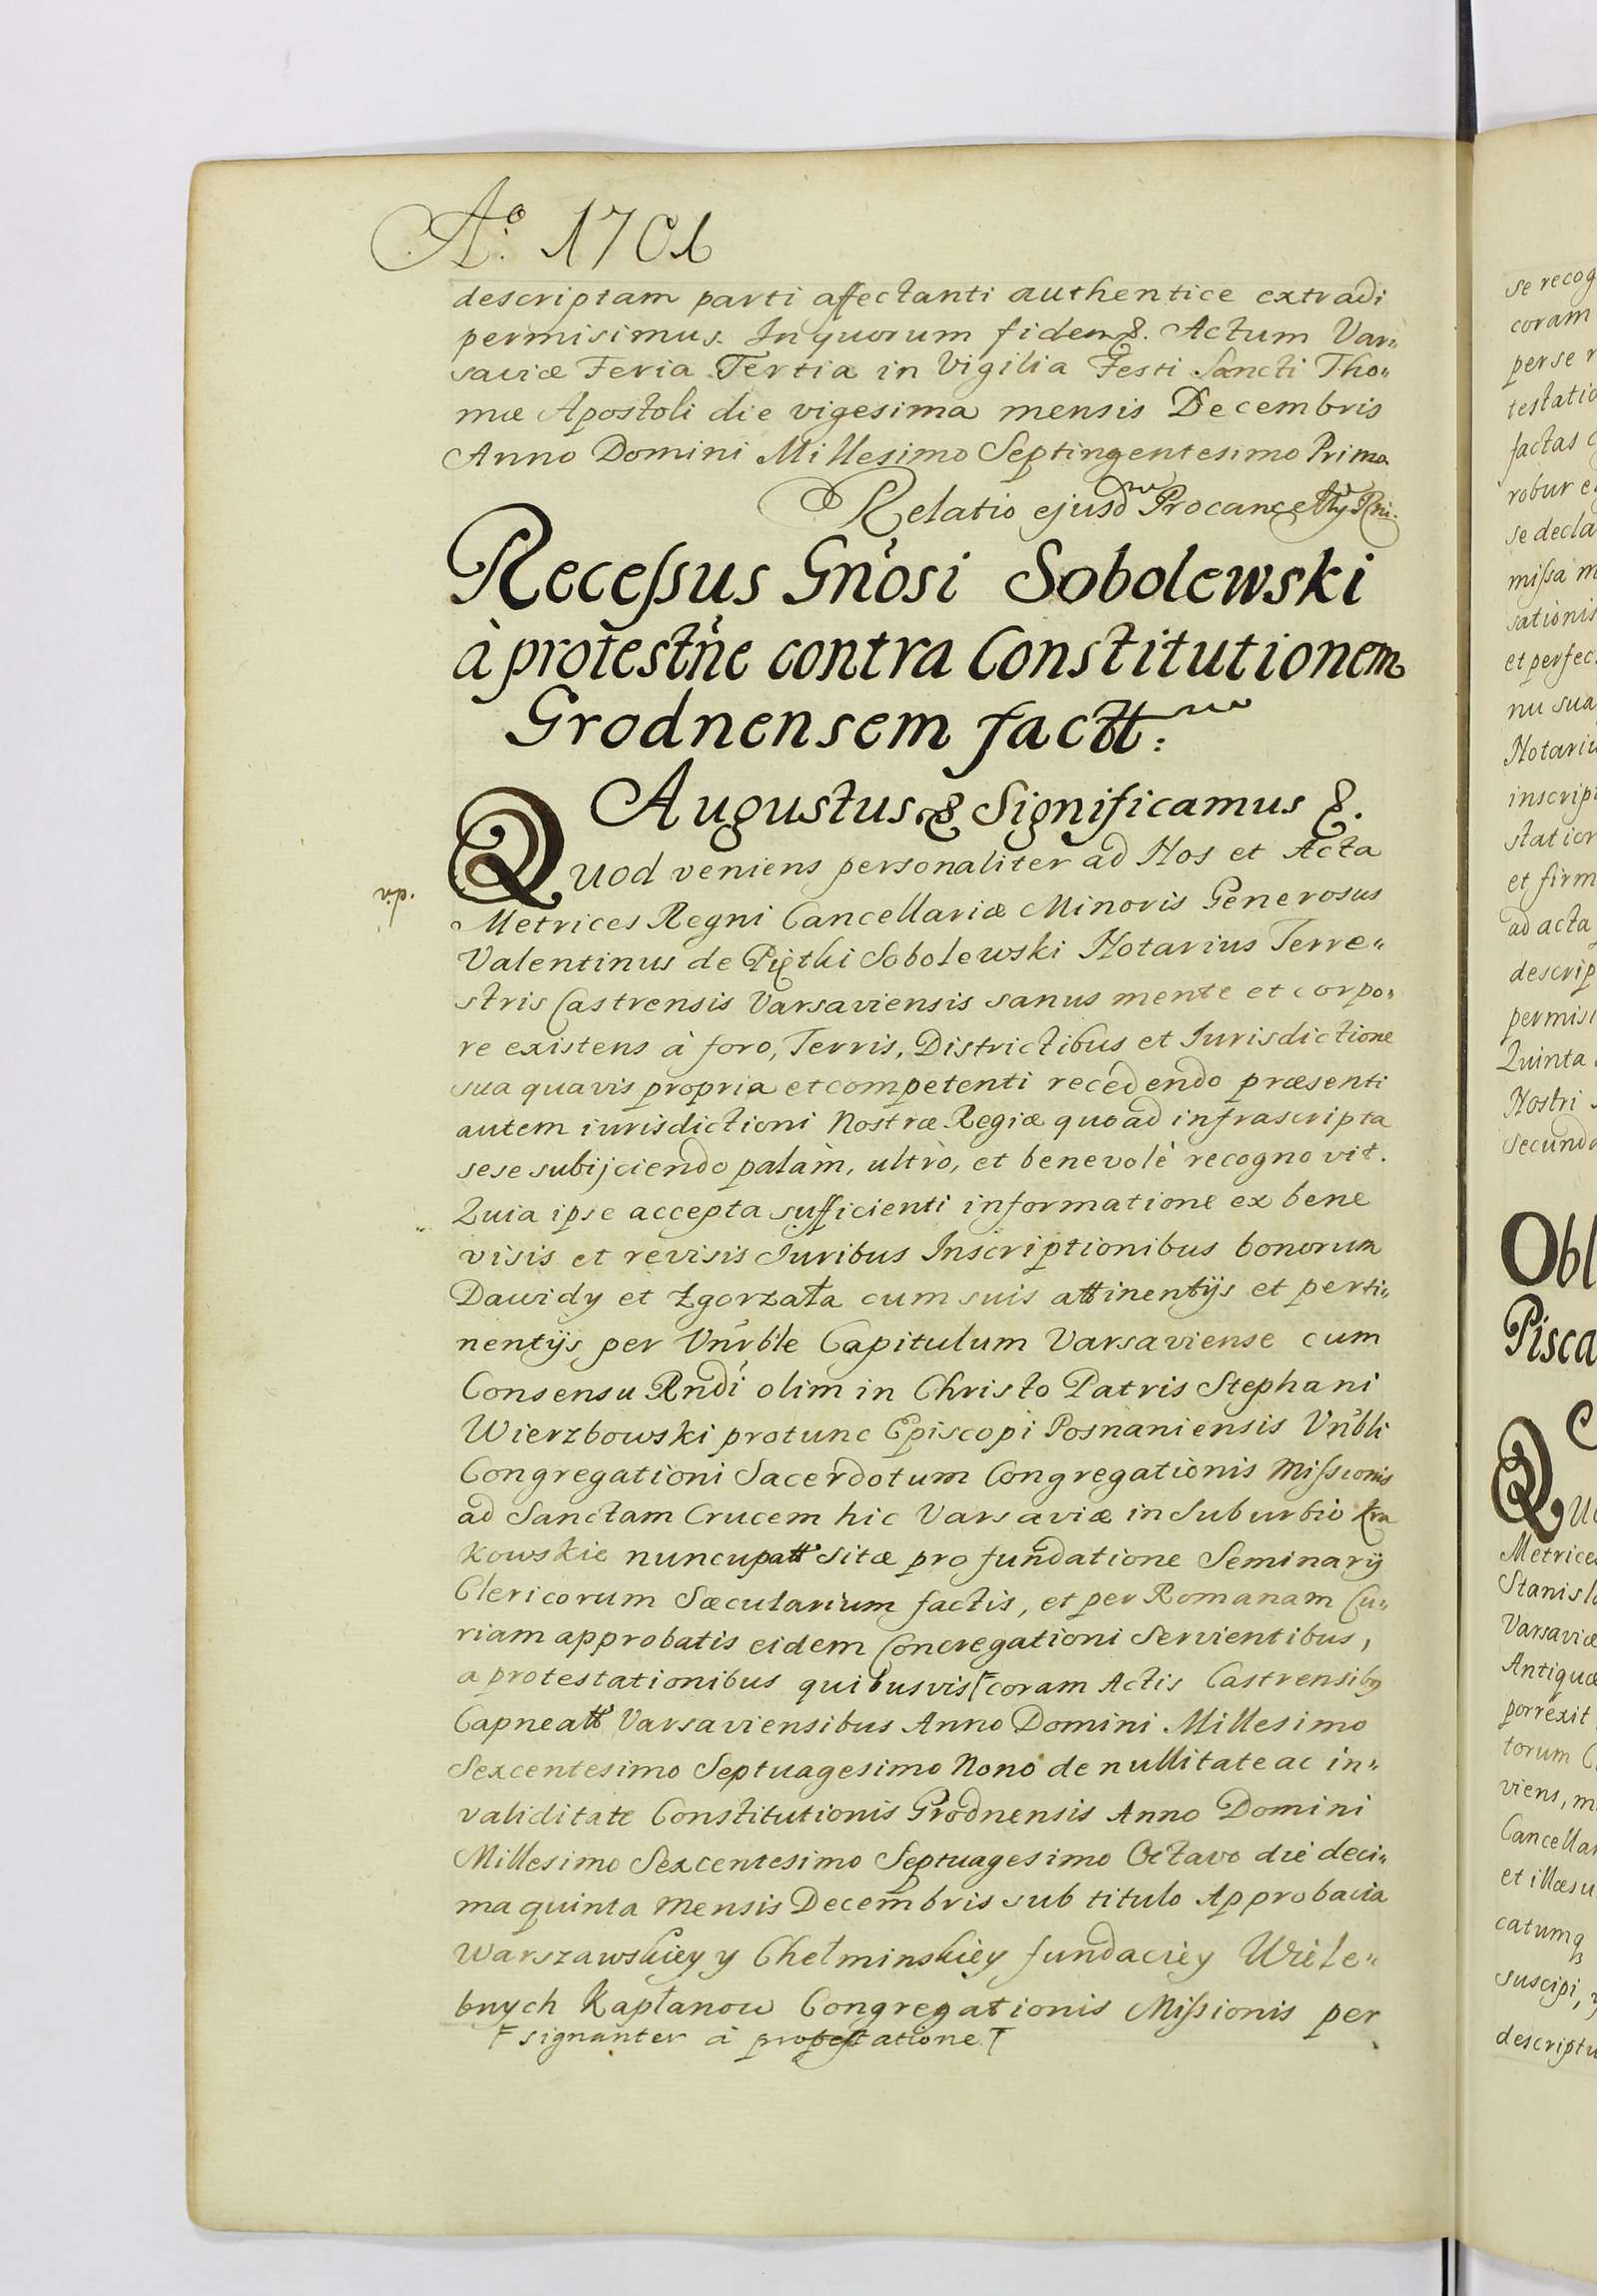 Aº 1701
descriptam parti affectanti authentice extradi
permisimus. In quorum fidem &. Actum Var„
saviæ Feria Tertia in Vigilia Festi Sancti Tho„
mæ Apostoli die vigesima mensis Decembris
Anno Domini Millesimo Septingentesimo Primo
Relatio ejusd Procancellrÿ Rni.
Recessus Gnosi Sobolewski
à protestne contra Constitutionem
Grodnensem factt:
Augustus & Significamus &.
Quod veniens personaliter ad Nos et Acta
Metrices Regni Cancellariæ Minoris Generosus
Valentinus de Piętki Sobolewski Notarius Terre„
stris Castrensis Varsaviensis sanus mente et corpo„
re existens à foro, Terris, Districtibus et Iurisdictione
sua quavis propria et competenti recedendo præsenti
autem iurisdictioni Nostræ Regiæ quoad infrascripta
sese subijciendo palàm, ultrò, et benevolè recognovit.
Quia ipse accepta sufficienti informatione ex bene
visis et revisis Iuribus Inscriptionibus bonorum
Dawidy et Zgorzała cum suis attinentijs et perti„
nentijs per Vnrble Capitulum Varsaviense cum
Consensu Rndi olim in Christo Patris Stephani
Wierzbowski protunc Episcopi Posnaniensis Vnbli
Congregationi Sacerdotum Congregationis Missionis
ad Sanctam Crucem hic Varsaviæ in Suburbio Kra
kowskie nuncupatt sitæ pro fundatione Seminarÿ
Clericorum Sæcularium factis, et per Romanam Cu„
riam approbatis eidem Concregationi Servientibus,
a protestationibus quibusvis coram Actis Castrensibg
Capneatt Varsaviensibus Anno Domini Millesimo
Sexcentesimo Septuagesimo Nono de nullitate ac in„
validitate Constitutionis Grodnensis Anno Domini
Millesimo Sexcentesimo Septuagesimo Octavo die deci„
ma quinta mensis Decembris sub titulo Approbacia
Warszawskiey y Chełminskiey fundaciey Wiele„
bnych Kapłanow Congregationis Missionis per
signanter à protestatione.
se recog
coram
per se r
testatio
factas
robur e
se decla
missa m
sationis
et perfec
nu sua
Notariu
inscrip
station
et firm
ad acta
descrip
permisi
Quinta
Nostri
secundo
Obl
Pisca
Metrice
Stanisl
Varsaviæ
Antiquæ
porrexit
torum
viens, m
Cancellar
et illæsu
catumq
suscipi,
descriptu